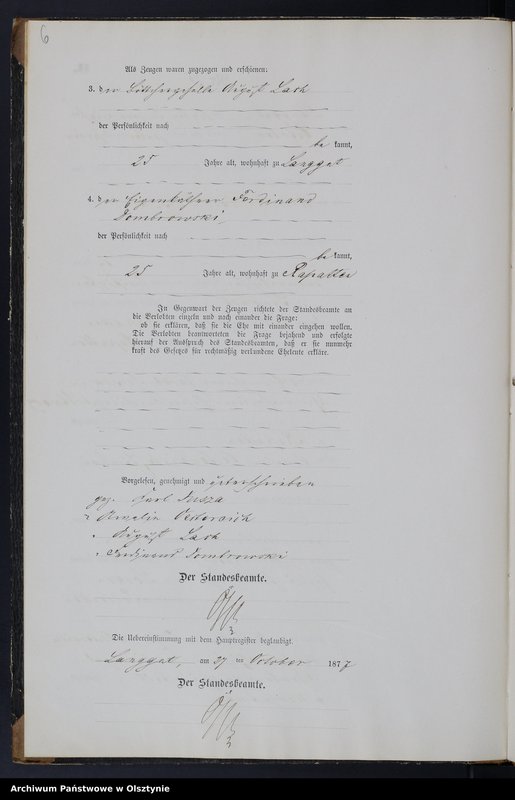 6
Als Zeugen waren zugezogen und erschienen:
3. der August Lach
der Persönlichkeit nach
be kannt,
25 Jahre alt, wohnhaft zu Langgut
4. der Eigenkäthner Ferdinand
Dombrowski
der Persönlichkeit nach
be kannt,
25 Jahre alt, wohnhaft zu Rapatten
In Gegenwart der Zeugen richtete der Standesbeamte an
die Verlobten einzeln und nach einander die Frage:
ob sie erklären, daß sie die Ehe mit einander eingehen wollen.
Die Verlobten beantworteten die Frage bejahend und erfolgte
hierauf der Ausspruch des Standesbeamten, daß er sie nunmehr
kraft des Gesetzes für rechtmäßig verbundene Eheleute erkläre.
Vorgelesen, genehmigt und unterschrieben
gez. Karl
Amalie
August Lach
Ferdinand Dombrowski
Der Standesbeamte.
Die Uebereinstimmung mit dem Hauptregister beglaubigt.
Langgut, am 27 ten October 1877
Der Standesbeamte.
Archiwum Państwowe w Olsztynie